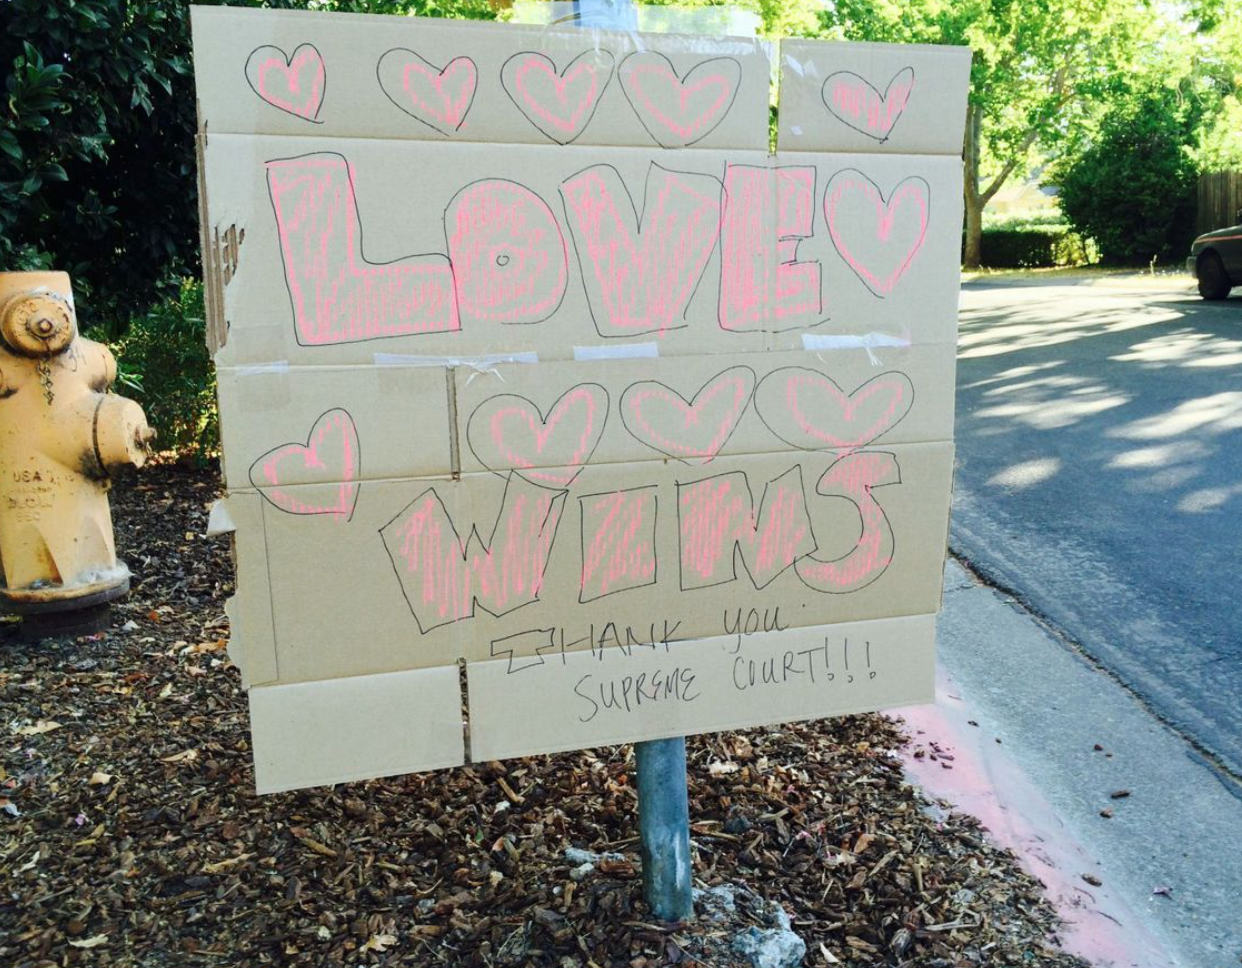 LOVE
WINS
THANK YOU
SUPREME COURT!!!
USA